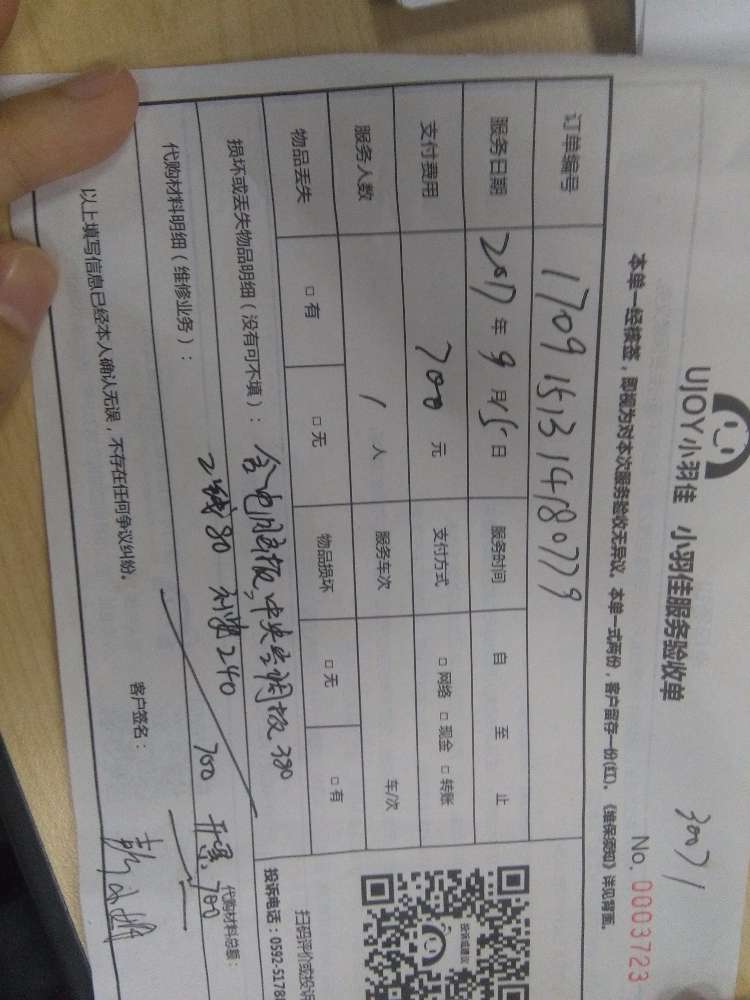 30071
UJOY小羽佳 小羽佳服务验收单
No. 0003723
本单一经核签，即视为对本次服务验收无异议。本单一式两份，客户留存一份(红)。《维保须知》详见背面。
订单编号 1709151314180779
服务日期 2017年9月15日 服务时间 自 至 止
支付费用 700元 支付方式 □网络 □现金 □转账
服务人数 1人 服务车次 车/次
物品丢失 □有 □无 物品损坏 □无 □有
损坏或丢失物品明细（没有可不填）： 含电脑板，中央空调板 380
2线80 240
代购材料明细（维修业务）： 700 开票700
代购材料总额：
以上填写信息已经本人确认无误，不存在任何争议纠纷。 客户签名：
投诉或建议
扫码评价或投诉
投诉电话：0592-5178